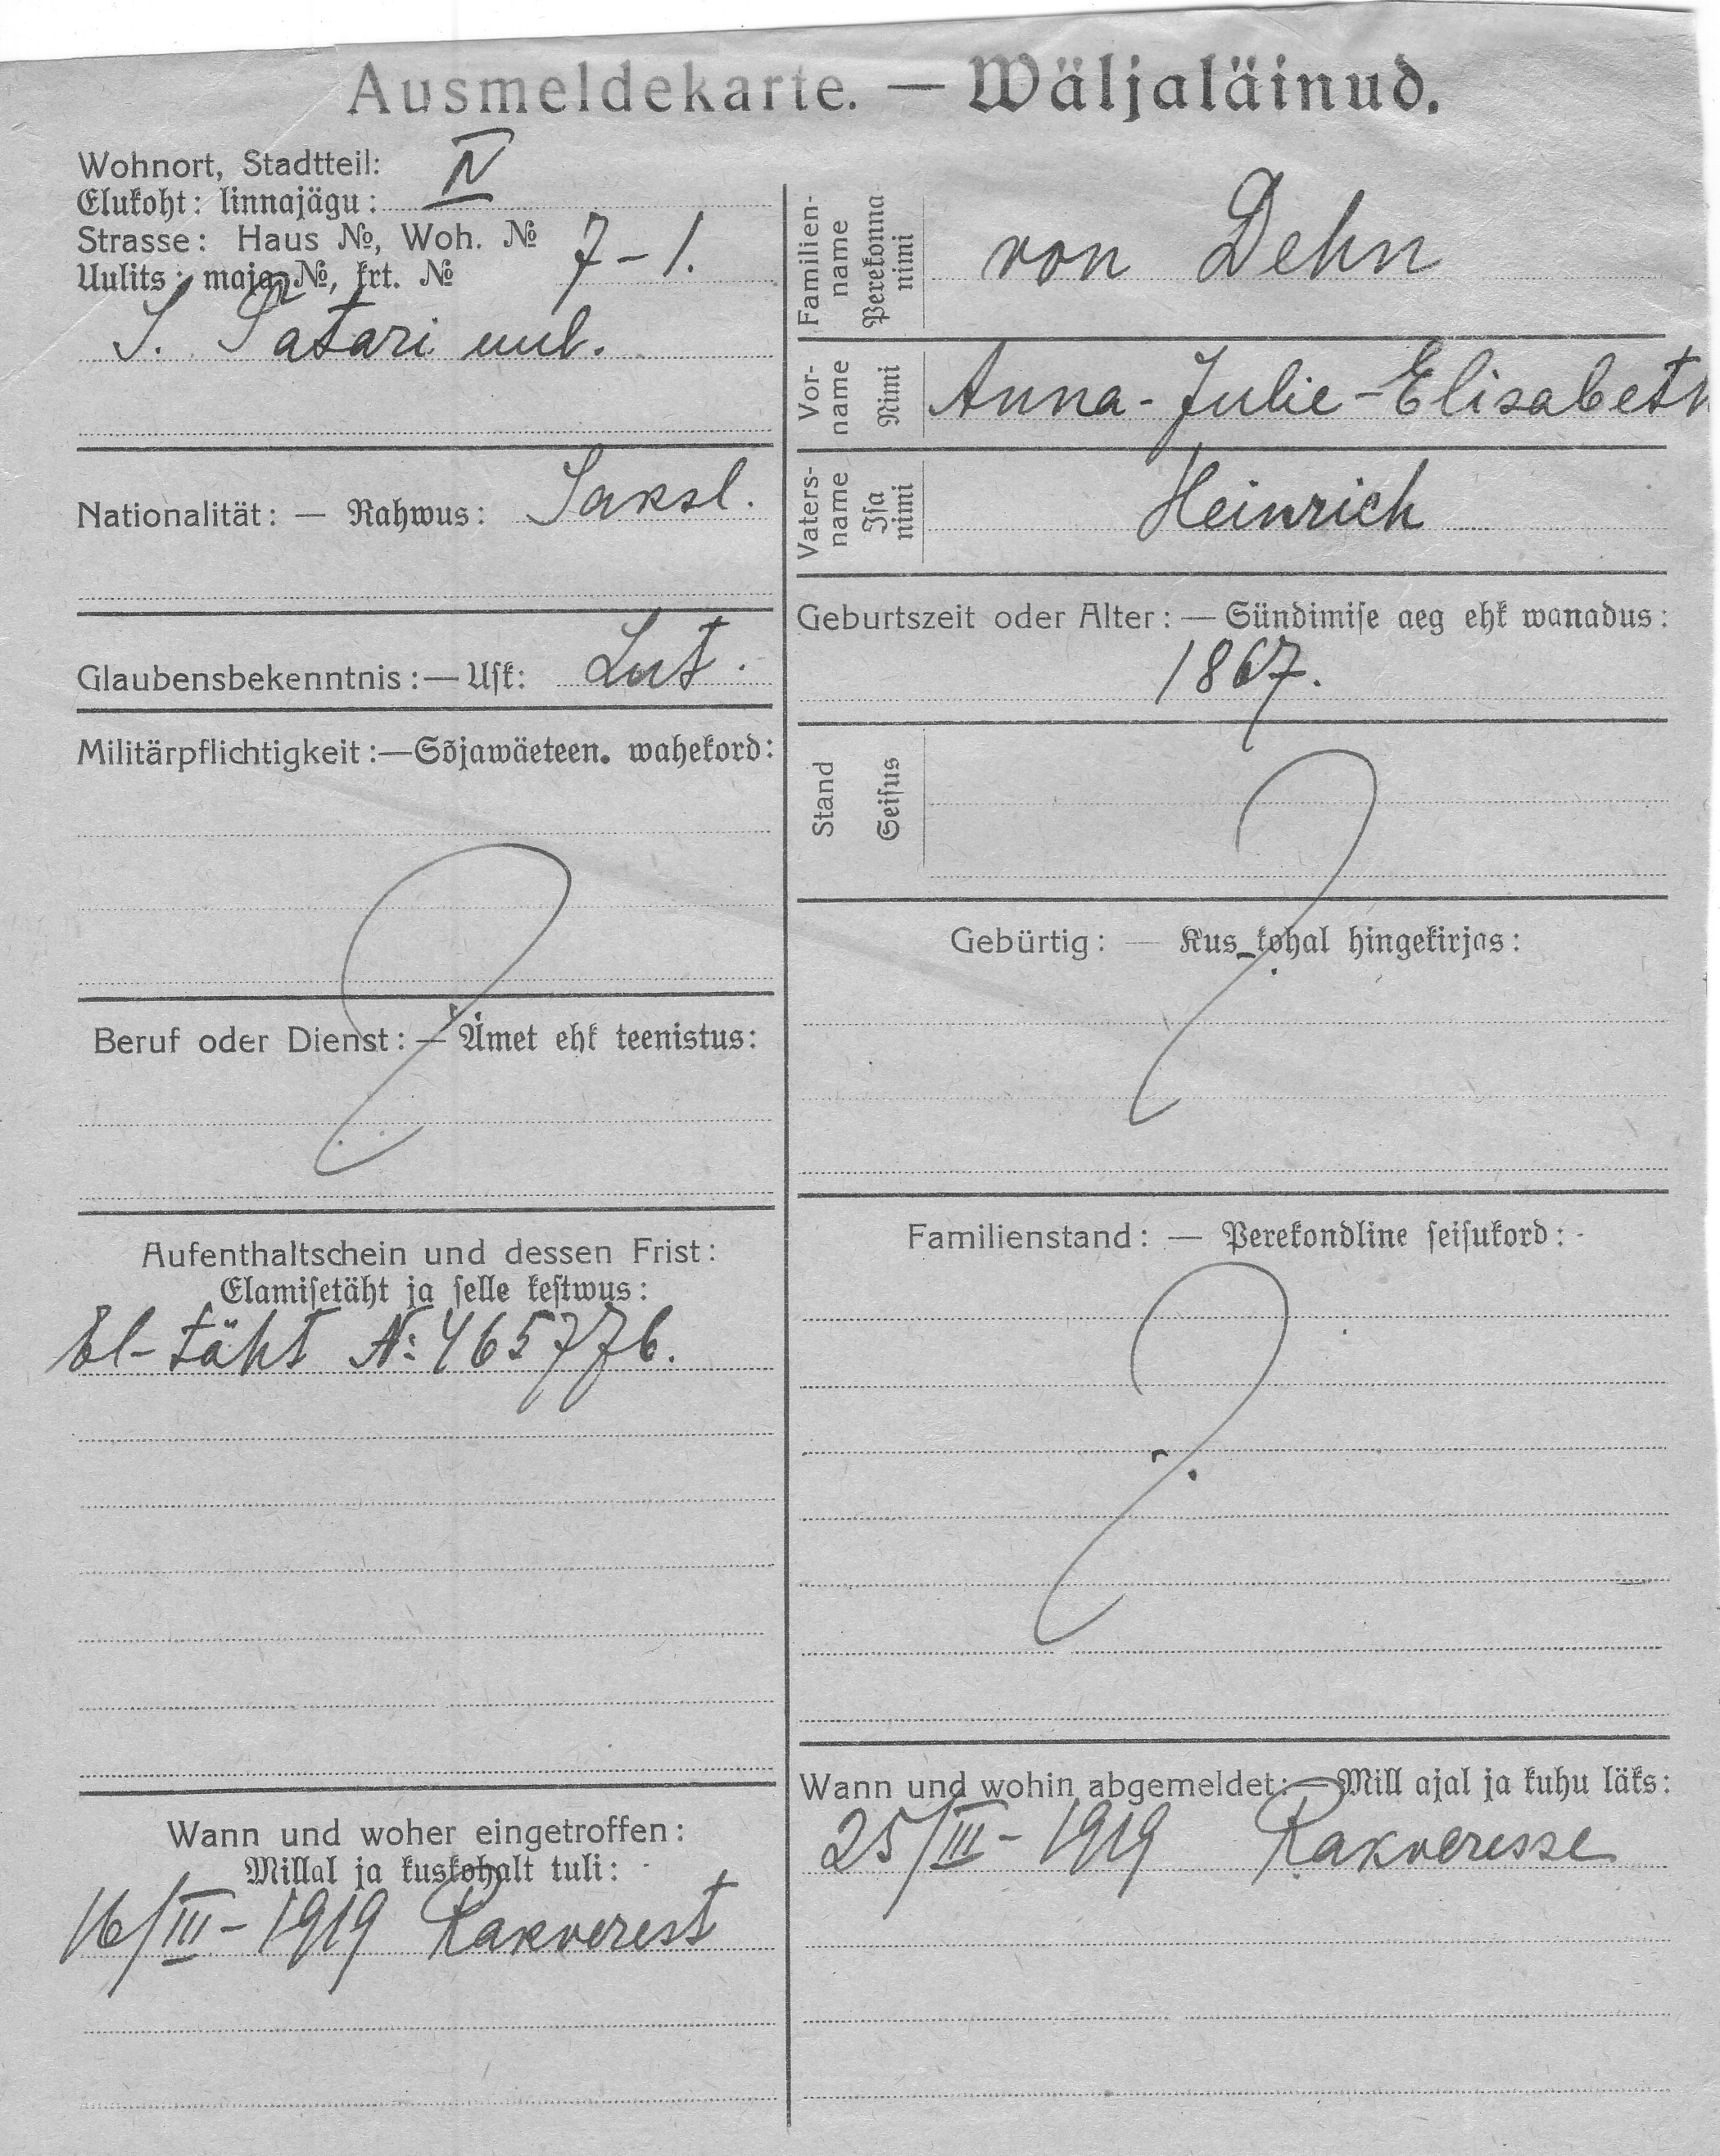 Ausmeldekarte. — Wäljaläinud.
Wohnort, Stadtteil:
Elukoht: linnajägu: IV
Strasse: Haus №, Woh. №
Uulits: maja №, krt. № 7-1.
S. Tatari uul.
Nationalität: — Rahwus: Saksl.
Glaubensbekenntnis: — Usk: Lut.
Militärpflichtigkeit: — Sõjawäeteen. wahekord:
Beruf oder Dienst: — Amet ehk teenistus:
Aufenthaltschein und dessen Frist:
Elamisetäht ja selle kestwus:
El-täht №: 465776.
Wann und woher eingetroffen:
Millal ja kuskohalt tuli:
16/III-1919 Rakverest
Familien-
name
Perekonna
nimi
von Dehn
Vor-
name
Nimi
Anna-Julie-Elisabeth
Vaters-
name
Isa
nimi
Heinrich
Geburtszeit oder Alter: — Sündimise aeg ehk wanadus:
1867.
Stand
Seisus
?
Gebürtig: — Kus kohal hingekirjas:
Familienstand: — Perekondline seisukord:
?
Wann und wohin abgemeldet: — Mill ajal ja kuhu läks:
25/III-1919 Rakveresse